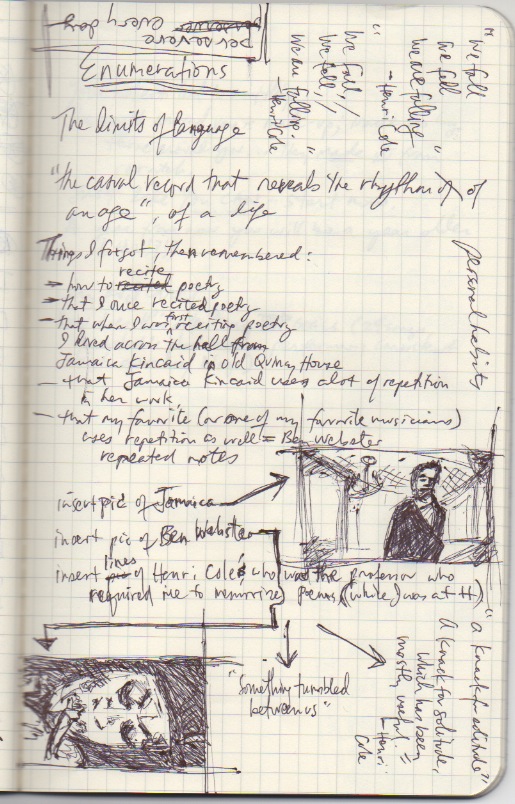 persevere
every day
Enumerations
"We fall
We fall
We are falling"
- Henri Cole
"We fall, /
We fall, //
We are falling."
- Henri Cole
The limits of language
"the casual record that reveals the rhythm of of
an age", of a life
personal habits
Things I forgot, then remembered:
how to recited recite poetry
- that I once recited poetry
- that when I was first reciting poetry
I lived across the hall from
Jamaica Kincaid in old Quincy House
- that Jamaica Kincaid uses a lot of repetition
in her work
- that my favorite (or one of my favorite musicians)
uses repetition as well = Ben Webster
repeated notes
insert pic of Jamaica
insert pic of Ben Webster
insert pic lines of Henri Cole's who was the professor who
required me to memorize poems (while I was at H)
"Something tumbled
between us"
"a knack for solitude"
A knack for solitude,
which has been
mostly useful."
- Henri
Cole